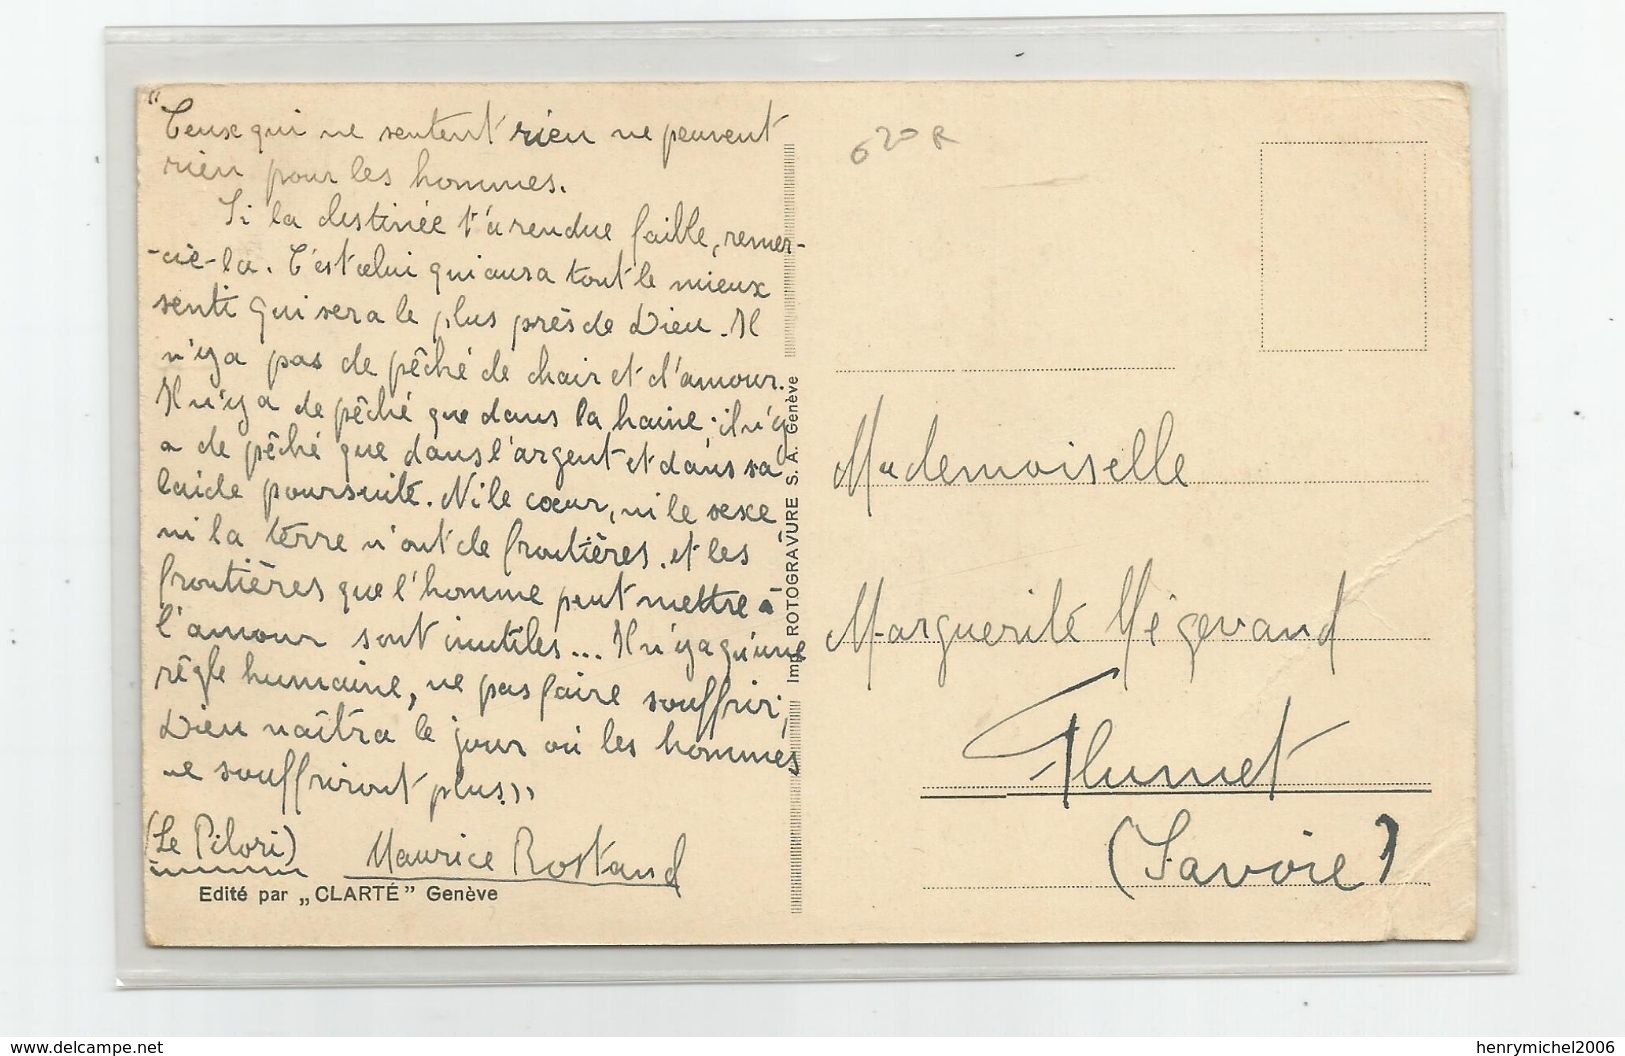 "Ceux qui ne sentent rien ne peuvent
rien pour les hommes.
Si la destinée t'a rendue faible, remer-
-cie-la. C'est celui qui aura tout le mieux
senti qui sera le plus près de Dieu. Il
n'y a pas de pêché de chair et d'amour.
Il n'y a de pêché que dans la haine; il n'y
a de pêché que dans l'argent et dans sa
laide poursuite. Ni le cœur, ni le sexe
ni la terre n'ont de frontières. et les
frontières que l'homme peut mettre à
l'amour sont inutiles... Il n'y a qu'une
règle humaine, ne pas faire souffrir;
Dieu naîtra le jour où les hommes
ne souffriront plus"
(Le Pilori) Maurice Rostand
Edité par „CLARTÉ" Genève
Imp. ROTOGRAVURE S. A. Genève
620 R
Mademoiselle
Marguerite Mégevand
Flumet
(Savoie)
delcampe.net
henrymichel2006